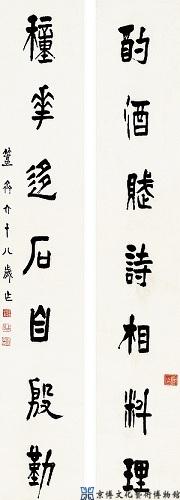 酌酒賦詩相料理
種華迻石自殷勤
簠齋六十八歲作
京博文化藝術博物館